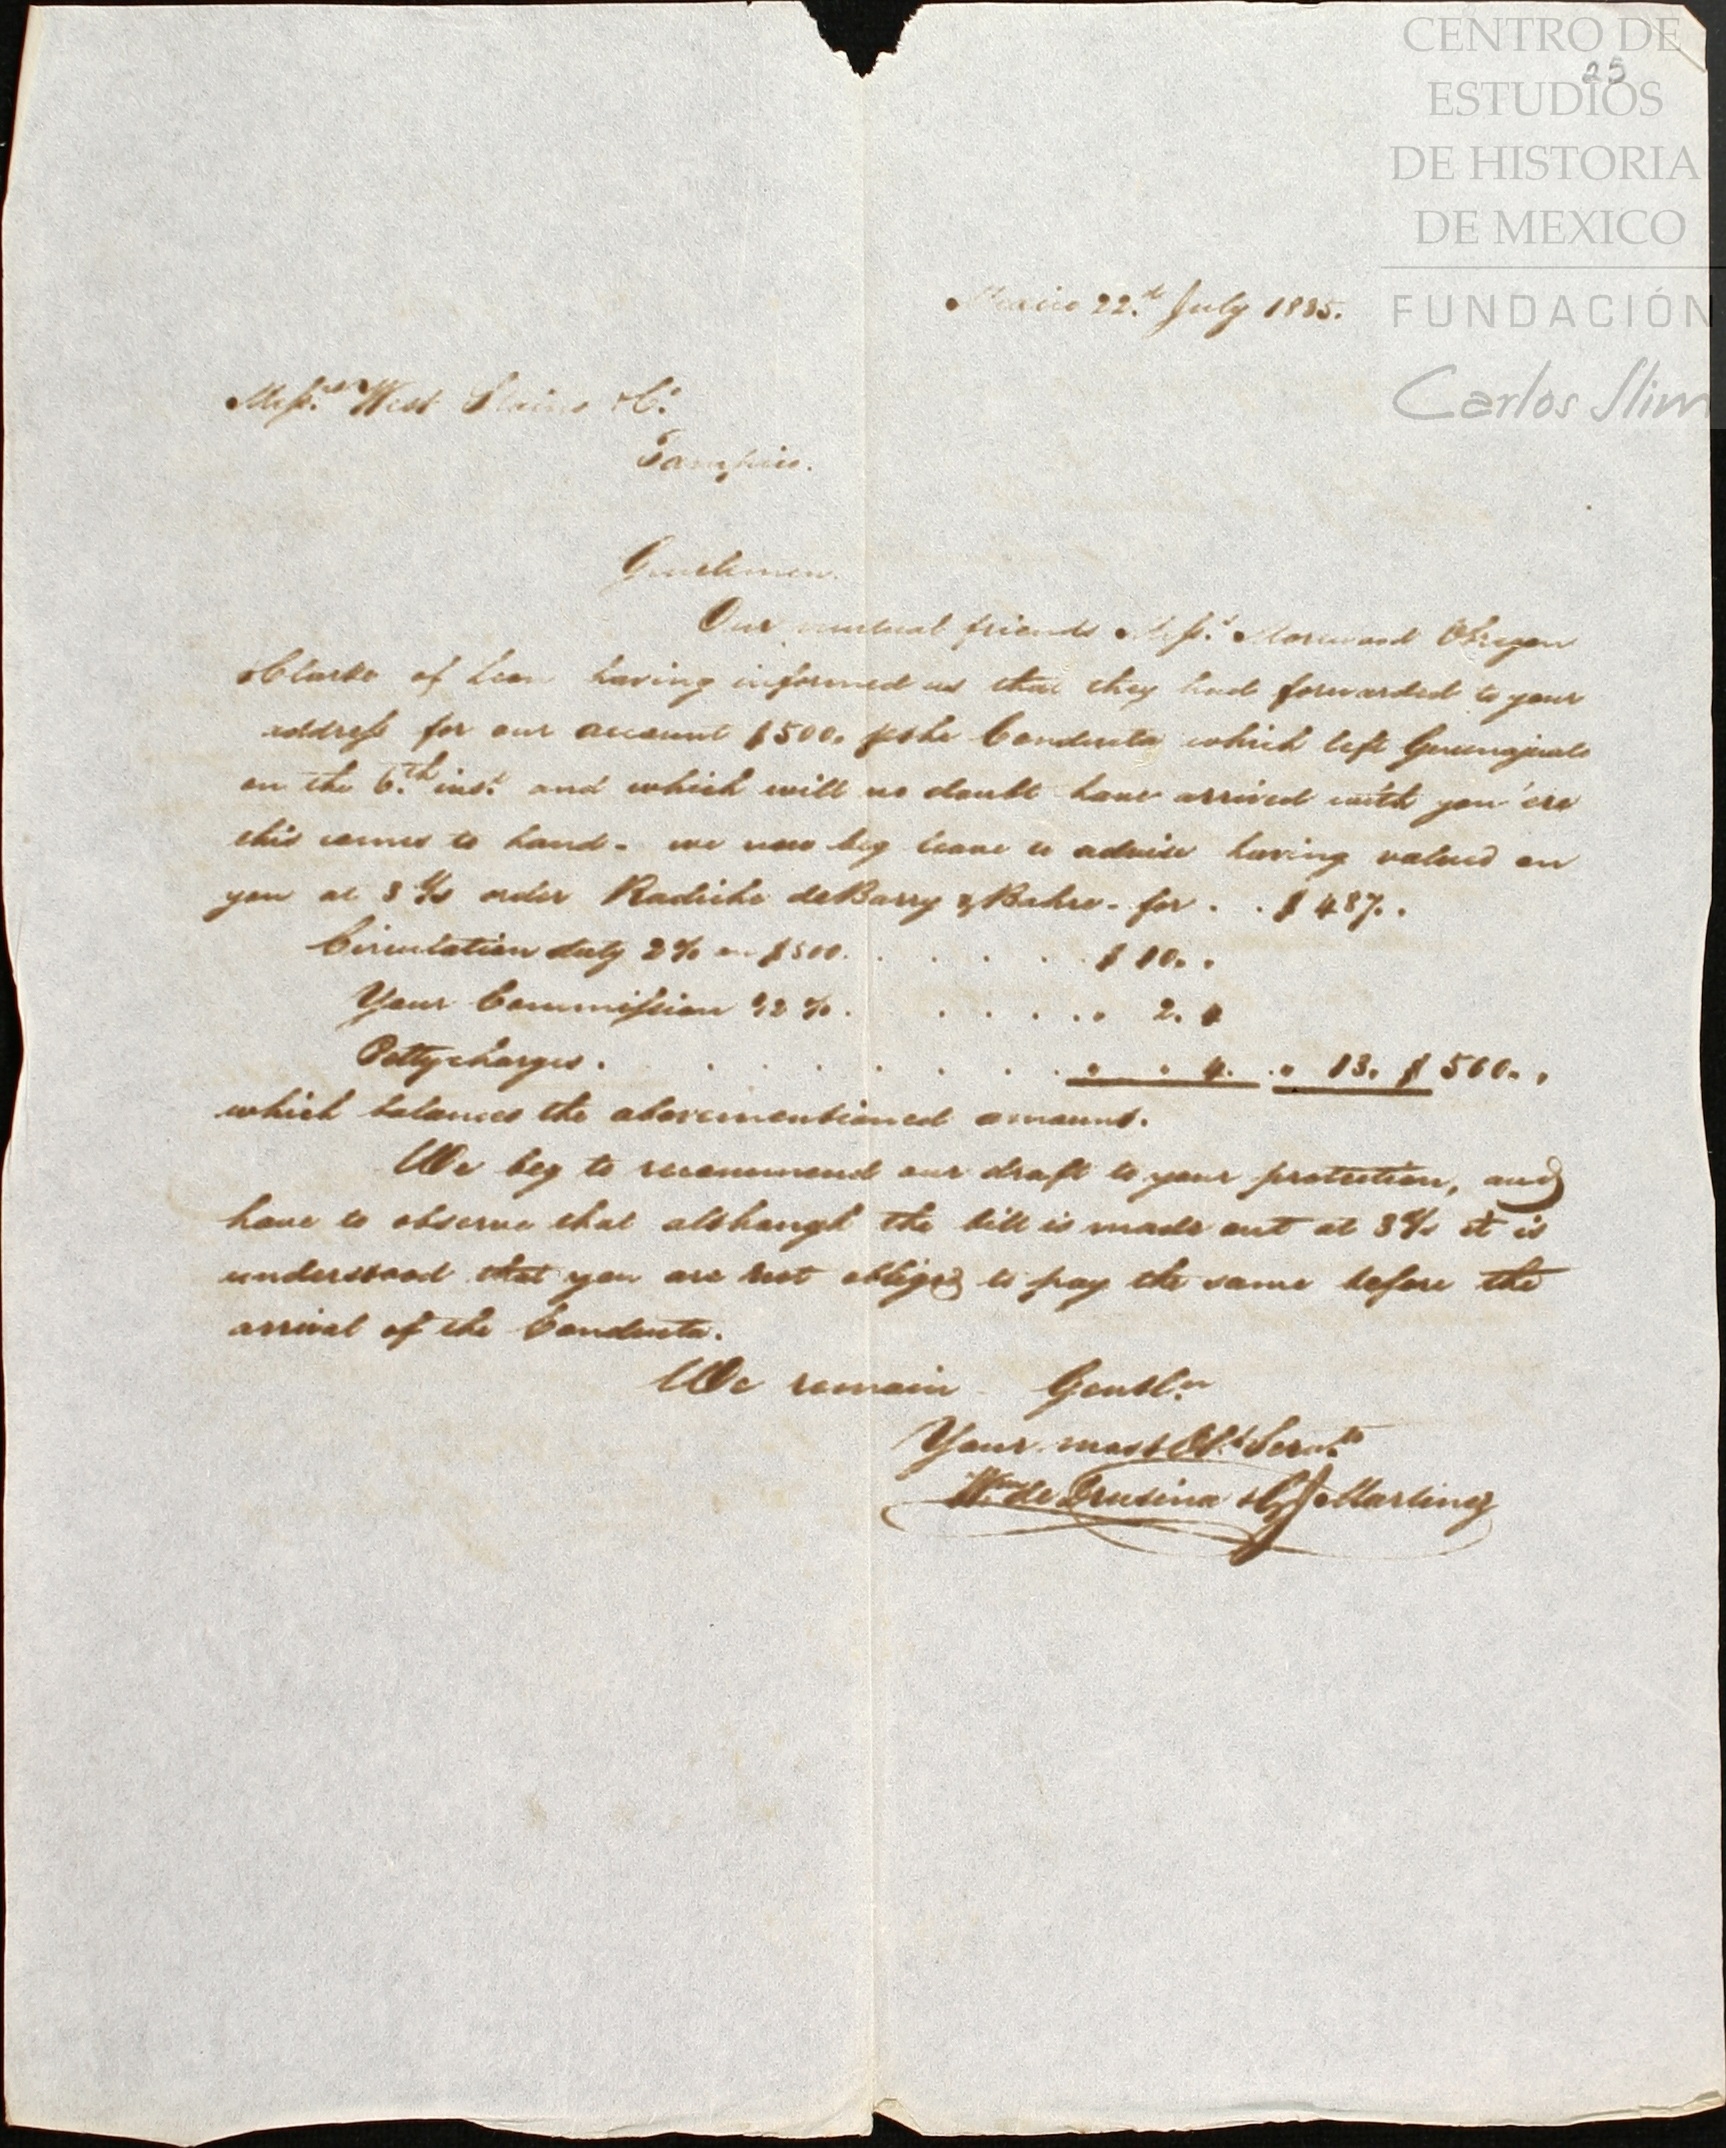 CENTRO DE
ESTUDIOS
DE HISTORIA
DE MEXICO
FUNDACIÓN
Carlos Slim
25
Mexico 22.th July 1835.
Messrs West &Co.
Tampico.
Gentlemen.
Our mutual friends Messrs. Marwood Obregon
&Clarke of Leon having informed us that they had forwarded to your
address for our account $500. pr the Conducta which left Guanajuato
on the 6.th inst. and which will no doubt have arrived with you 'ere
this comes to hand - we now beg leave to advise having valued on
you at 3 d/s order Radicke deBarry & Bahre - for . . $ 487. .
Circulation duty 2% on $500. . . . . . $ 10. .
Your Commission ½ % . . . . . . . 2. 4
Pettycharges . . . . . . . . . . . . 4. . . 13. $ 500. .
which balances the abovementioned amount.
We beg to recommend our draft to your protection, and
have to observe that although the bill is made out at 3 d/s it is
understood that you are not obliged to pay the same before the
arrival of the Conducta.
We remain Gentln.
Your most Obt. Servts
Wm de Drusina &Co Martinez